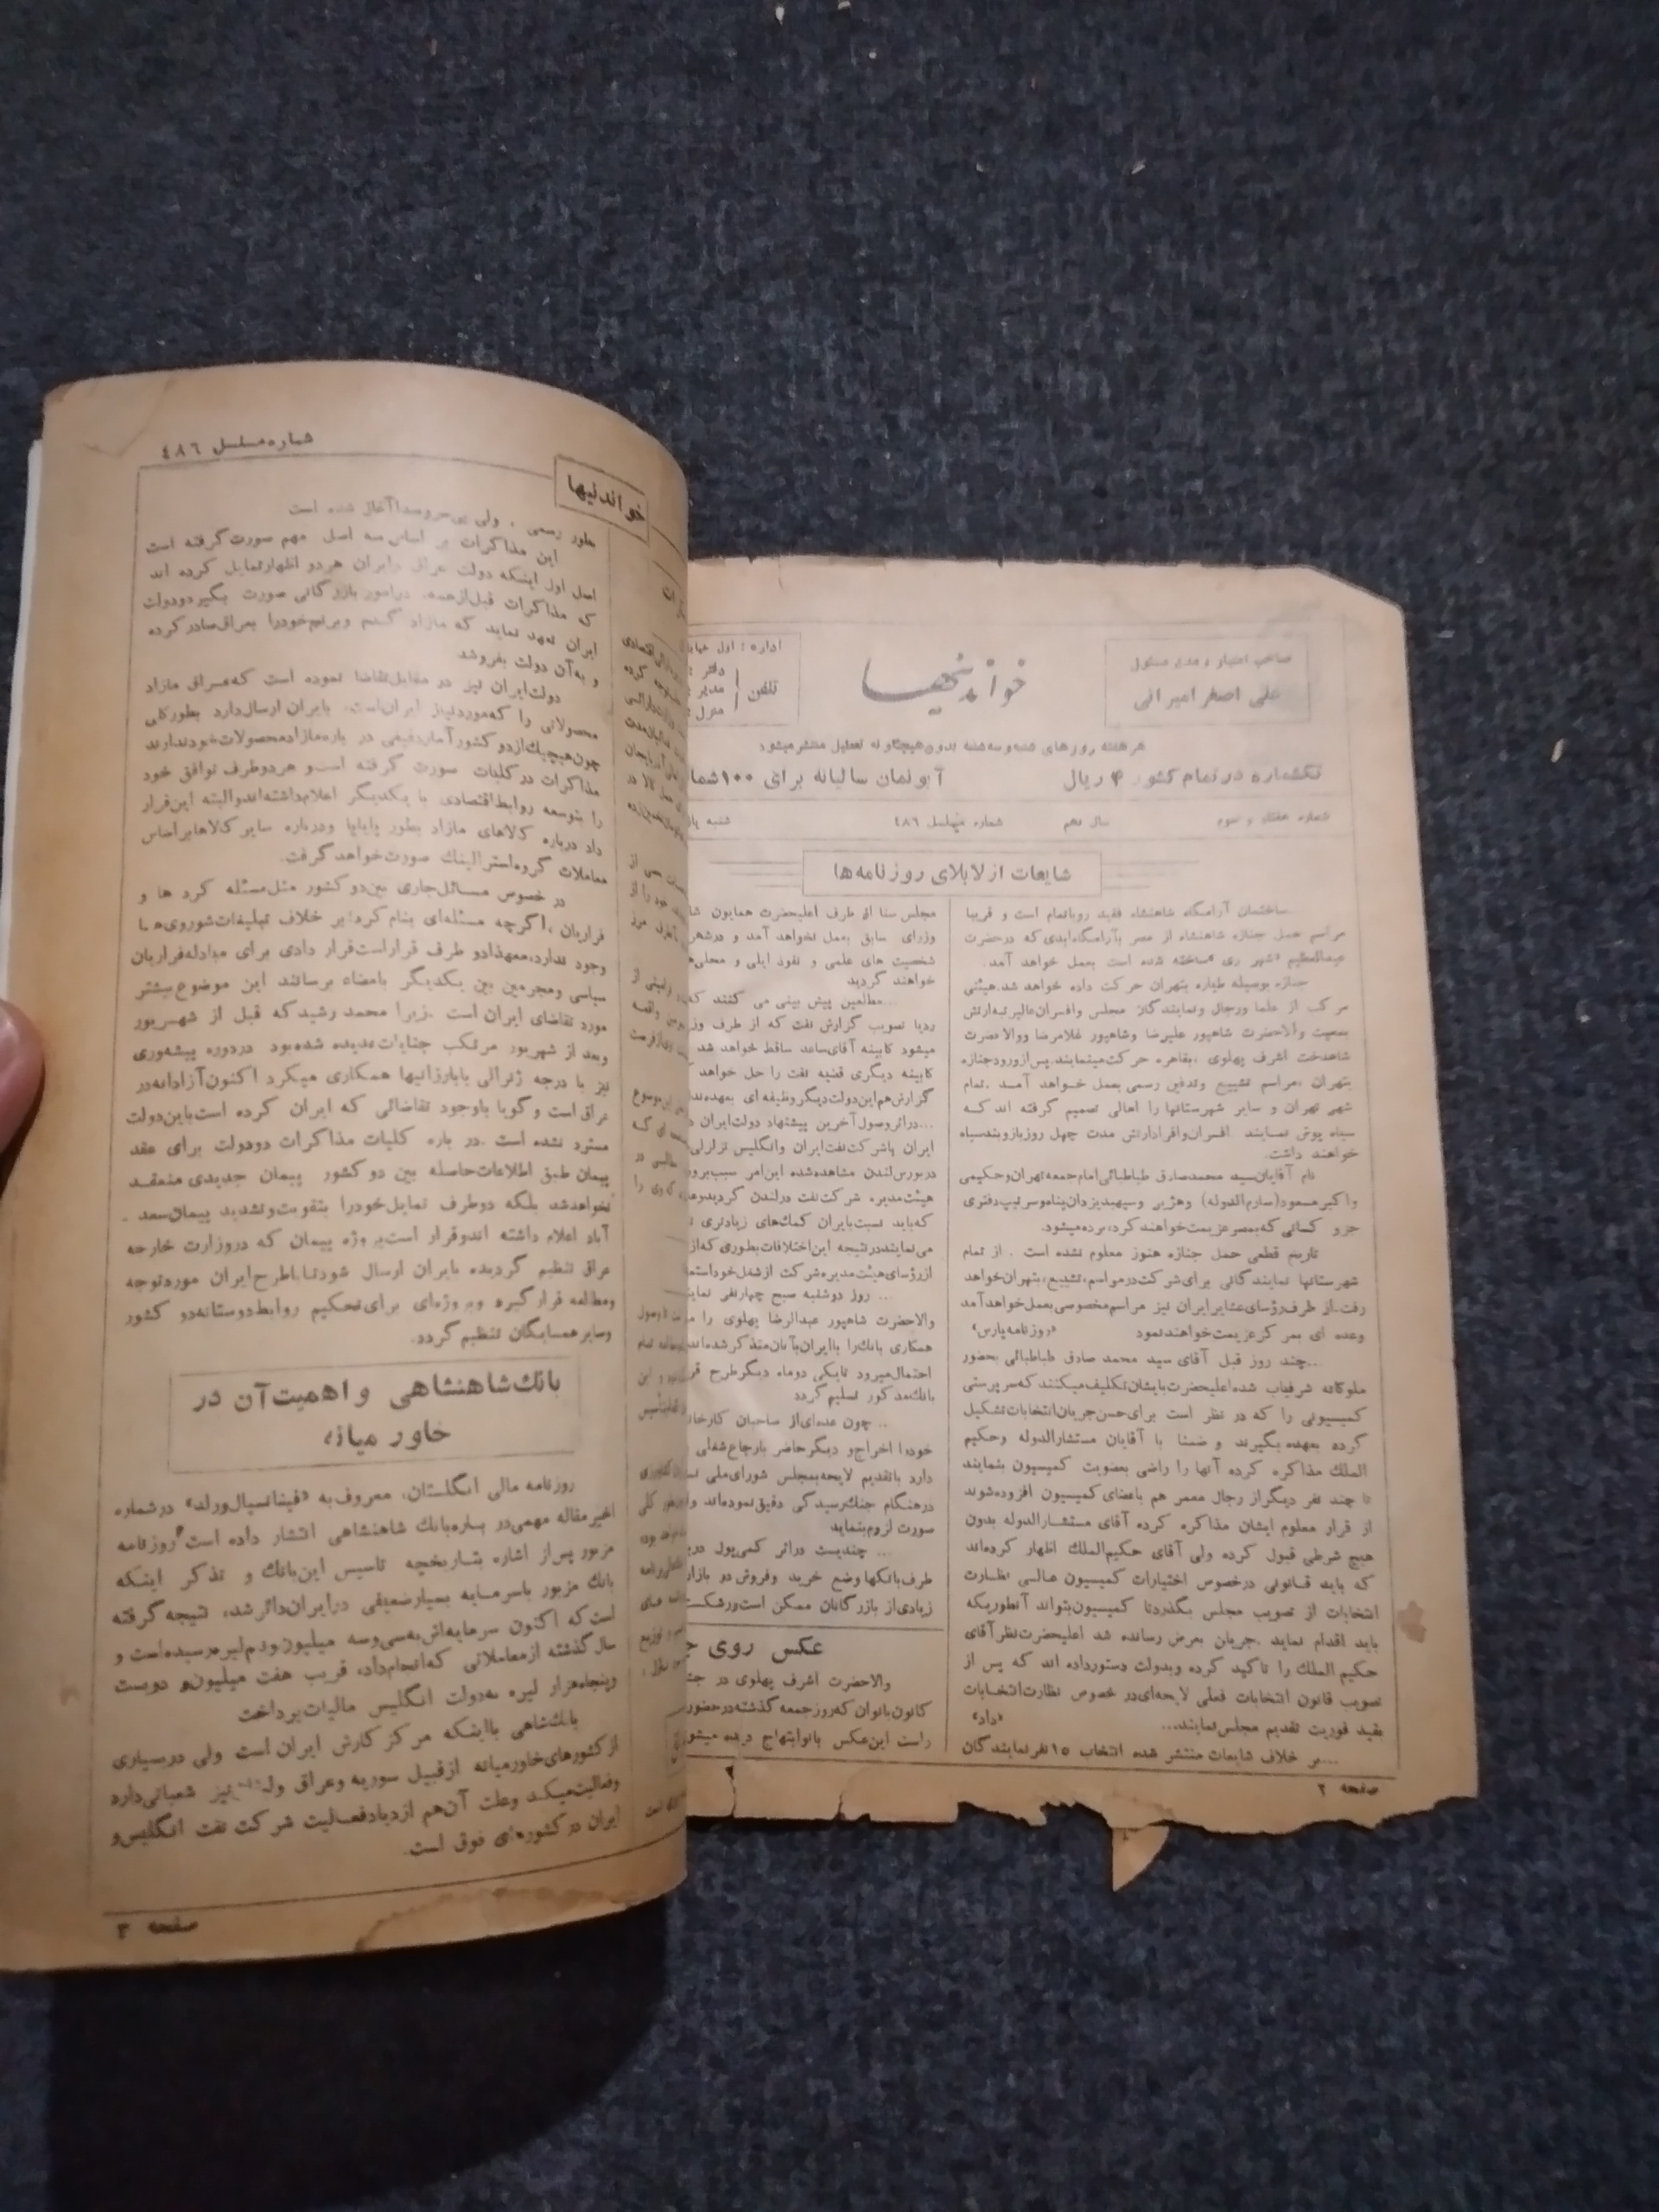 صاحب امتیاز و مدیر مسئول
علی اصغر امیرانی
خواندنیها
اداره : اول
تلفن
دفتر
مدیر
منزل
هر هفته روزهای شنبه و سه شنبه بدون هیچگونه تعطیل منتشر میشود
تکشماره در تمام کشور ۴ ریال
آبونمان سالیانه برای ۱۰۰ شما
شماره هفتاد و سوم
سال نهم
شماره مسلسل ۴۸۶
شنبه
شایعات از لابلای روزنامه ها
ساختمان آرامگاه شاهنشاه فقید رو باتمام است و قریبا
مراسم حمل جنازه شاهنشاه از مصر بآرامگاه ابدی که در حضرت
عبدالعظیم «شهر ری» ساخته شده است بعمل خواهد آمد.
جنازه بوسیله طیاره بتهران حرکت داده خواهد شد. هیئتی
مرکب از علما و رجال و نمایندگان مجلس و افسران عالیرتبه ارتش
بمعیت والاحضرت شاهپور علیرضا و شاهپور غلامرضا و والاحضرت
شاهدخت اشرف پهلوی ، بقاهره حرکت مینمایند. پس از ورود جنازه
بتهران ، مراسم تشییع و تدفین رسمی بعمل خواهد آمد . تمام
شهر تهران و سایر شهرستانها را اهالی تصمیم گرفته اند که
سیاه پوش نمایند افسران و افراد ارتش مدت چهل روز بازوبند سیاه
خواهند داشت.
نام آقایان سید محمد صادق طباطبائی امام جمعه تهران و حکیمی
و اکبر مسعود (صارم الدوله) و هژیر و سپهبد یزدان پناه و سرتیپ دفتری
جزو کسانی که بمصر عزیمت خواهند کرد، برده میشود.
تاریخ قطعی حمل جنازه هنوز معلوم نشده است . از تمام
شهرستانها نمایندگانی برای شرکت در مراسم، تشییع، بتهران خواهد
رفت. از طرف رؤسای عشایر ایران نیز مراسم مخصوصی بعمل خواهد آمد
وعده ای بمرکز عزیمت خواهند نمود «روزنامه پارس»
...چند روز قبل آقای سید محمد صادق طباطبائی بحضور
ملوکانه شرفیاب شده اعلیحضرت بایشان تکلیف میکنند که سرپرستی
کمیسیونی را که در نظر است برای حسن جریان انتخابات تشکیل
گردد بعهده بگیرند و ضمنا با آقایان مستشارالدوله و حکیم
الملك مذاکره کرده آنها را راضی بعضویت کمیسیون بنمایند
تا چند نفر دیگر از رجال معمر هم باعضای کمیسیون افزوده شوند
از قرار معلوم ایشان مذاکره کرده آقای مستشارالدوله بدون
هیچ شرطی قبول کرده ولی آقای حکیم الملك اظهار کرده اند
که باید قانونی در خصوص اختیارات کمیسیون عالی نظارت
انتخابات از تصویب مجلس بگذرد تا کمیسیون بتواند آنطوریکه
باید اقدام نماید . جریان بعرض رسانده شد اعلیحضرت نظر آقای
حکیم الملك را تاکید کرده و بدولت دستور داده اند که پس از
تصویب قانون انتخابات فعلی لایحه ای در خصوص نظارت انتخابات
بقید فوریت تقدیم مجلس نمایند... «داد»
...بر خلاف شایعات منتشر شده انتخاب ۱۵ نفر نمایندگان
صفحه ۲
مجلس سنا از طرف اعلیحضرت همایون شا
وزرای سابق بعمل نخواهد آمد و در شهر
شخصیت های علمی و نفوذ ایلی و محلی
خواهند گردید
...مطلعین پیش بینی می کنند که
ردیا تصویب گزارش نفت که از طرف وز
میشود کابینه آقای ساعد ساقط خواهد شد
کابینه دیگری قضیه نفت را حل خواهد
گزارش هم این دولت دیگر وظیفه ای بعهده ندا
...در اثر وصول آخرین پیشنهاد دولت ایران
ایران با شرکت نفت ایران و انگلیس تزلزلی
در بورس لندن مشاهده شده این امر سبب
هیئت مدیره شرکت نفت در لندن گردید
که باید نسبت بایران کمك های زیادتری
می نمایند در نتیجه این اختلافات بطوری که از
از رؤسای هیئت مدیره شرکت از شغل خود استعفا
... روز دوشنبه صبح چهار نفر نماین
والاحضرت شاهپور عبدالرضا پهلوی را
همکاری بانك را با ایران بآنان متذکر شده اند
احتمال میرود تا یکی دو ماه دیگر طرح
بانك مذکور تسلیم گردد
... چون عده ای از صاحبان کارخا
خود را اخراج و دیگر حاضر بارجاع شغلی
دارد با تقدیم لایحه بمجلس شورای ملی
در هنگام جنك رسیدگی دقیق نموده اند
صورت لزوم بنماید
... چندیست در اثر کمی پول در
طرف بانکها وضع خرید و فروش در بازار
زیادی از بازرگانان ممکن است ورشکست
عکس روی ج
والاحضرت اشرف پهلوی در
کانون بانوان که روز جمعه گذشته در حضور
راست این عکس بانو ابتهاج دیده میشو
شماره مسلسل ۴۸۶
خواندنیها
بطور رسمی ، ولی بی سر و صدا آغاز شده است
این مذاکرات بر اساس سه اصل مهم صورت گرفته است
اصل اول اینکه دولت عراق و ایران هر دو اظهار تمایل کرده اند
که مذاکرات قبل از همه، در امور بازرگانی صورت بگیرد و دولت
ایران تعهد نماید که مازاد گندم و برنج خود را بعراق صادر کرده
و به آن دولت بفروشد
دولت ایران نیز در مقابل تقاضا نموده است که عراق مازاد
محصولاتی را که مورد نیاز ایران است، بایران ارسال دارد بطور کلی
چون هیچیك از دو کشور آمار دقیقی در باره مازاد محصولات خود ندارند
مذاکرات در کلیات صورت گرفته است و هر دو طرف توافق خود
را بتوسعه روابط اقتصادی با یکدیگر اعلام داشته اند و البته این قرار
داد درباره کالاهای مازاد بطور پایاپا و درباره سایر کالاها بر اساس
معاملات گروه استرالینك صورت خواهد گرفت.
در خصوص مسائل جاری بین دو کشور مثل مسئله کرد ها و
فراریان ، اگرچه مسئله ای بنام کرد، بر خلاف تبلیغات شوروی ها
وجود ندارد، معهذا دو طرف قرار است قرار دادی برای مبادله فراریان
سیاسی و مجرمین بین یکدیگر بامضاء برسانند این موضوع بیشتر
مورد تقاضای ایران است . زیرا محمد رشید که قبل از شهریور
و بعد از شهریور مرتکب جنایات عدیده شده بود در دوره پیشه وری
نیز با درجه ژنرالی با بارزانیها همکاری میکرد اکنون آزادانه در
عراق است و گویا با وجود تقاضائی که ایران کرده است باین دولت
مسترد نشده است . در باره کلیات مذاکرات دو دولت برای عقد
پیمان طبق اطلاعات حاصله بین دو کشور پیمان جدیدی منعقد
نخواهد شد بلکه دو طرف تمایل خود را بتقویت و تشدید پیمان سعد
آباد اعلام داشته اند و قرار است پروژه پیمان که در وزارت خارجه
عراق تنظیم گردیده بایران ارسال شود تا با طرح ایران مورد توجه
و مطالعه قرار گیرد و پروژه ای برای تحکیم روابط دوستانه دو کشور
و سایر همسایگان تنظیم گردد.
بانك شاهنشاهی و اهمیت آن در
خاور میانه
روزنامه مالی انگلستان، معروف به «فینانسیال ورلد» در شماره
اخیر مقاله مهمی در باره بانك شاهنشاهی انتشار داده است روزنامه
مزبور پس از اشاره بتاریخچه تاسیس این بانك و تذکر اینکه
بانك مزبور با سرمایه بسیار ضعیفی در ایران دائر شد، نتیجه گرفته
است که اکنون سرمایه اش به سی و سه میلیون و نیم لیره رسیده است و
سال گذشته از معاملاتی که انجام داد، قریب هفت میلیون و دویست
و پنجاه هزار لیره به دولت انگلیس مالیات پرداخت
بانك شاهی با اینکه مرکز کارش ایران است ولی در بسیاری
از کشورهای خاورمیانه از قبیل سوریه و عراق و نیز شعباتی دارد
و فعالیت میکند و علت آن هم ازدیاد فعالیت شرکت نفت انگلیس و
ایران در کشورهای فوق است.
صفحه ۳